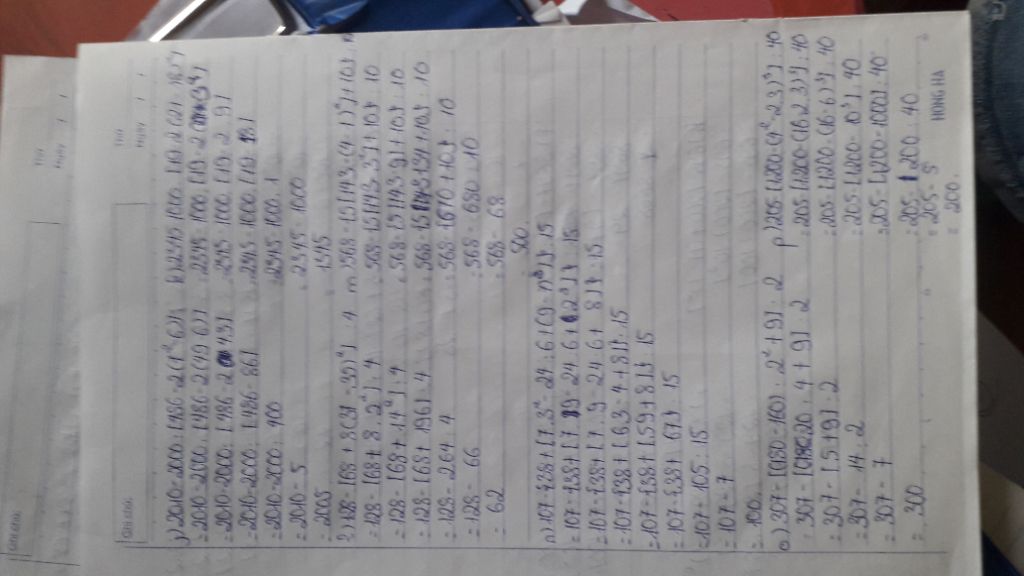 j) 2010 - 2000 : [486 - 2(7² - 6)]
= 2010 - 2000 : [486 - 2(49 - 6)]
= 2010 - 2000 : [486 - 2 . 43]
= 2010 - 2000 : [486 - 86]
= 2010 - 2000 : 400
= 2010 - 5
= 2005
k) 2345 - 1000 : [19 - 2(21 - 18)²]
= 2345 - 1000 : [19 - 2
= 2345 - 1000 : [19 - 2 . 9]
= 2345 - 1000 : [19 - 18]
= 2345 - 1000 : 1
= 2345 - 1000
= 1345
= 128 - [68 + 8 . 2²] : 4
= 128 - [68 + 196] : 4
= 128 - 264 : 4
= 128 - 66
= 62
m) 568 - {5[143 - (4 - 1)²] + 10} : 10
= 568 - {5[143 - 3²] + 10} : 10
= 568 - {5[143 - 9] + 10} : 10
= 568 - {5 . 134 + 10} : 10
= 568 - {670 + 10} : 10
= 568 - 680 : 10
= 568 - 68
500
= 107 - {38 + [7 . 9 - 24 : 6 + 8]} : 15
= 107 - {38 + [63 - 4 + 8]} : 15
= 107 - {38 + [59 + 8]} : 15
= 107 - {38 + 67} : 15
= 107 - 105 : 15
= 107 - 7
= 100
o) 307 - [(180 - 160) : 2² + 9] : 2
= 307 - [20 : 4 + 9] : 2
= 307 - [5 + 9] : 2
= 307 - 14 : 2
= 307 - 7
= 300
p) 205 - [1200 - (4² - 2 . 3)³] : 40
= 205 - [1200 - (16 - 2 . 3)³] : 40
= 205 - [1200 - (16 - 6)³] : 40
= 205 - [1200 - 10³] : 40
= 205 - [1200 - 1000] : 40
= 205 - 200 : 40
= 205 - 5
= 200
HỒNG HÀ